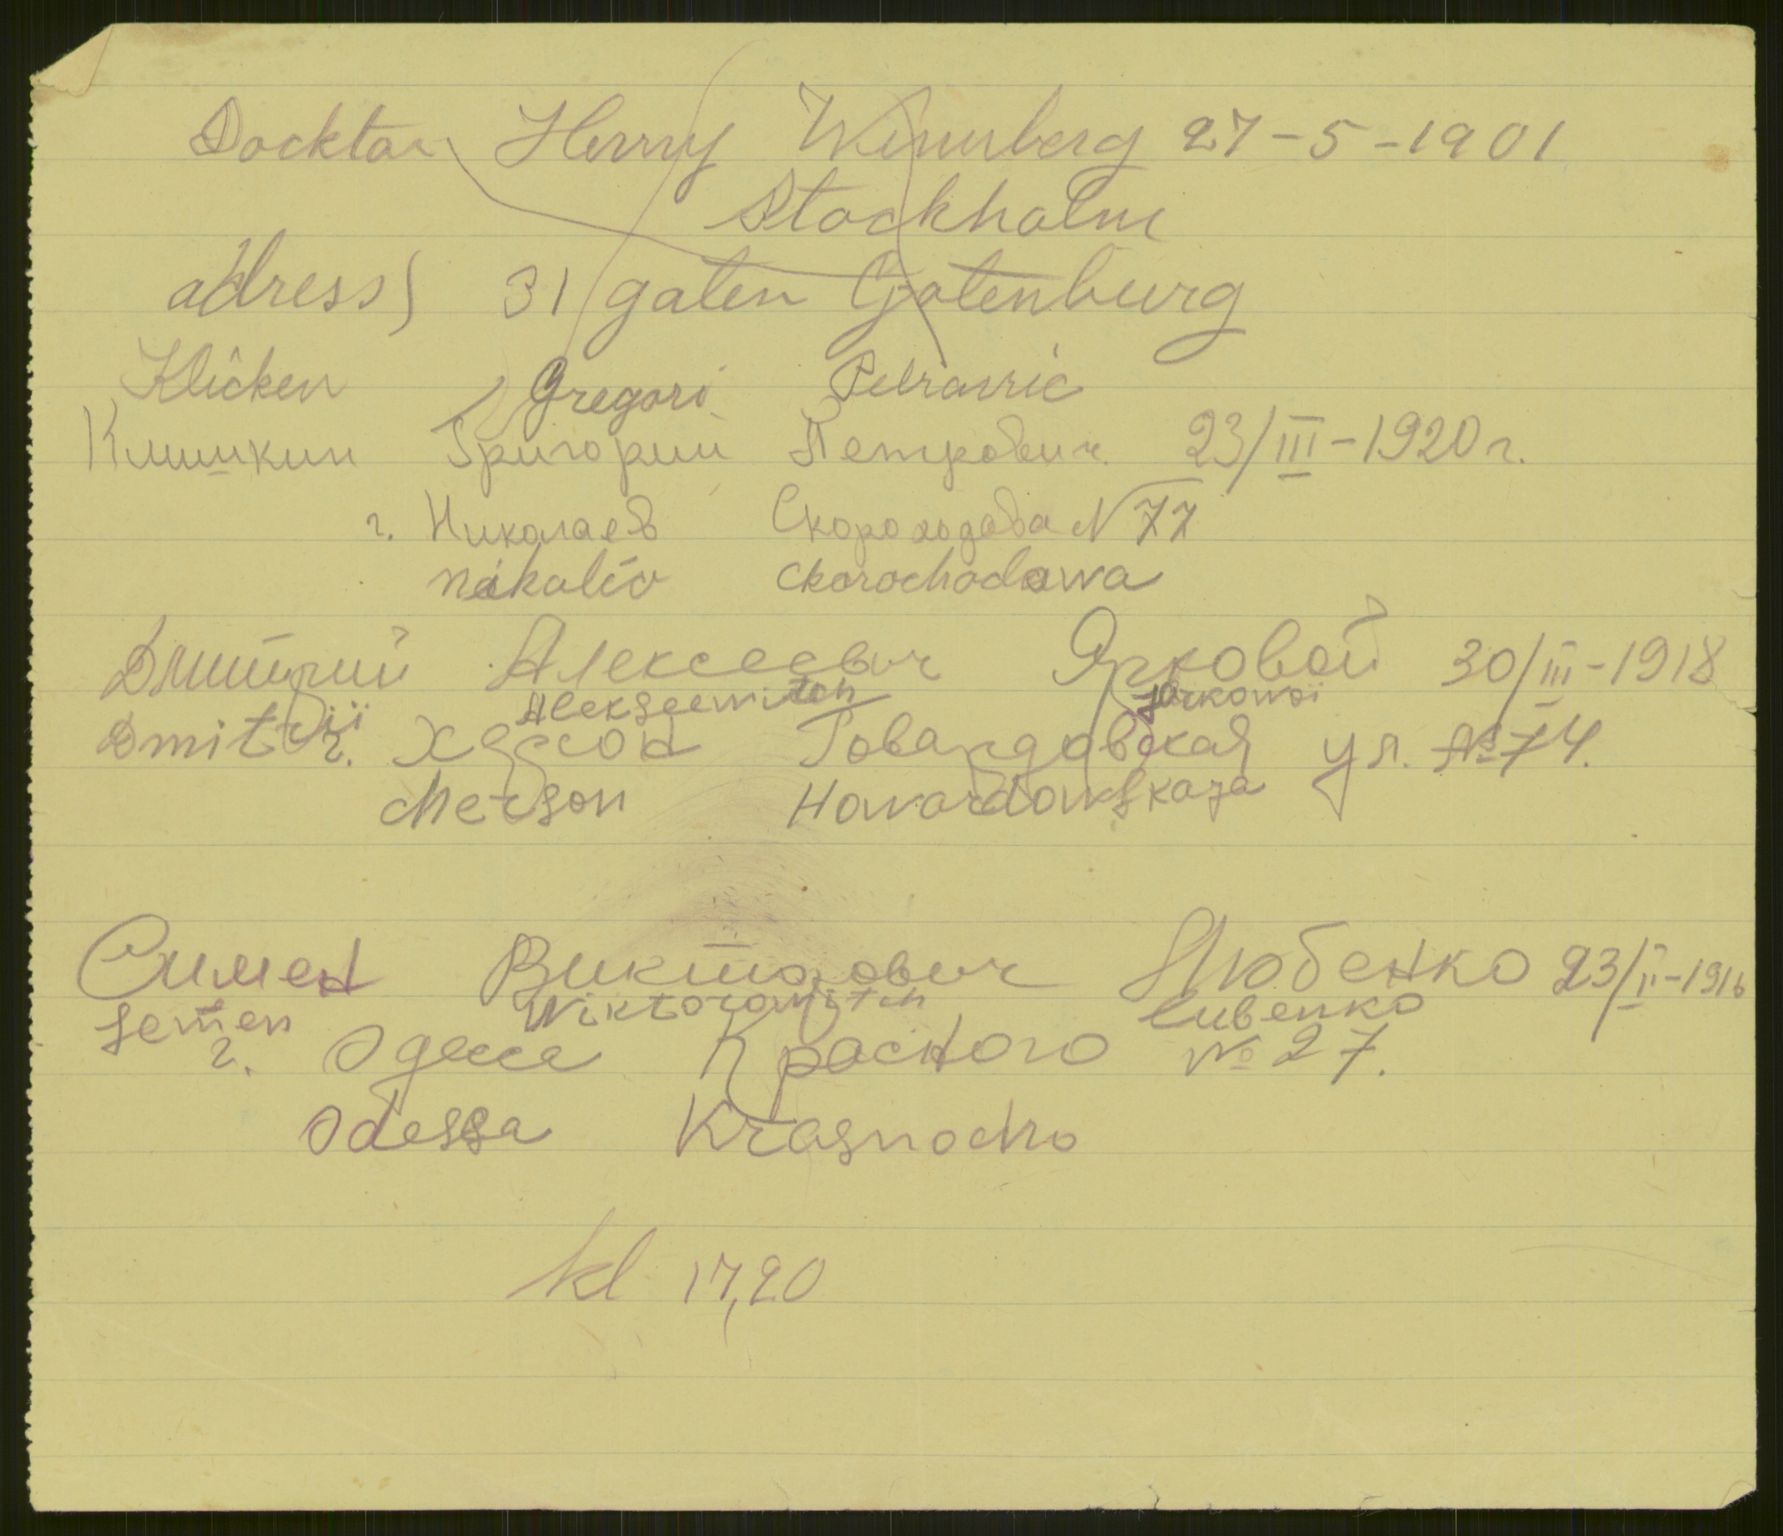 Docktor Henry Wennberg 27-5-1901
Stockholm
adress) 31 gaten Gotenburg
Klicken Gregori Petrowic
Кмишкин Григорий Петрович 23/III-1920г.
г. Николаев Скороходова N 77
Nikoliv Ckorochodowa
Дмитрий Алексеевич Ярковой 30/III-1918
Alekseewitch Jarkowoi
Dmitrii г. Херсон Говардовская ул. №74.
Cherson Howardowskaja
Симен Викторович Любенко 23/II-1916
Semen Wiktorowitch Lubenko
г. Одесса Красного № 27.
Odessa Krasnocho
kl 17,20